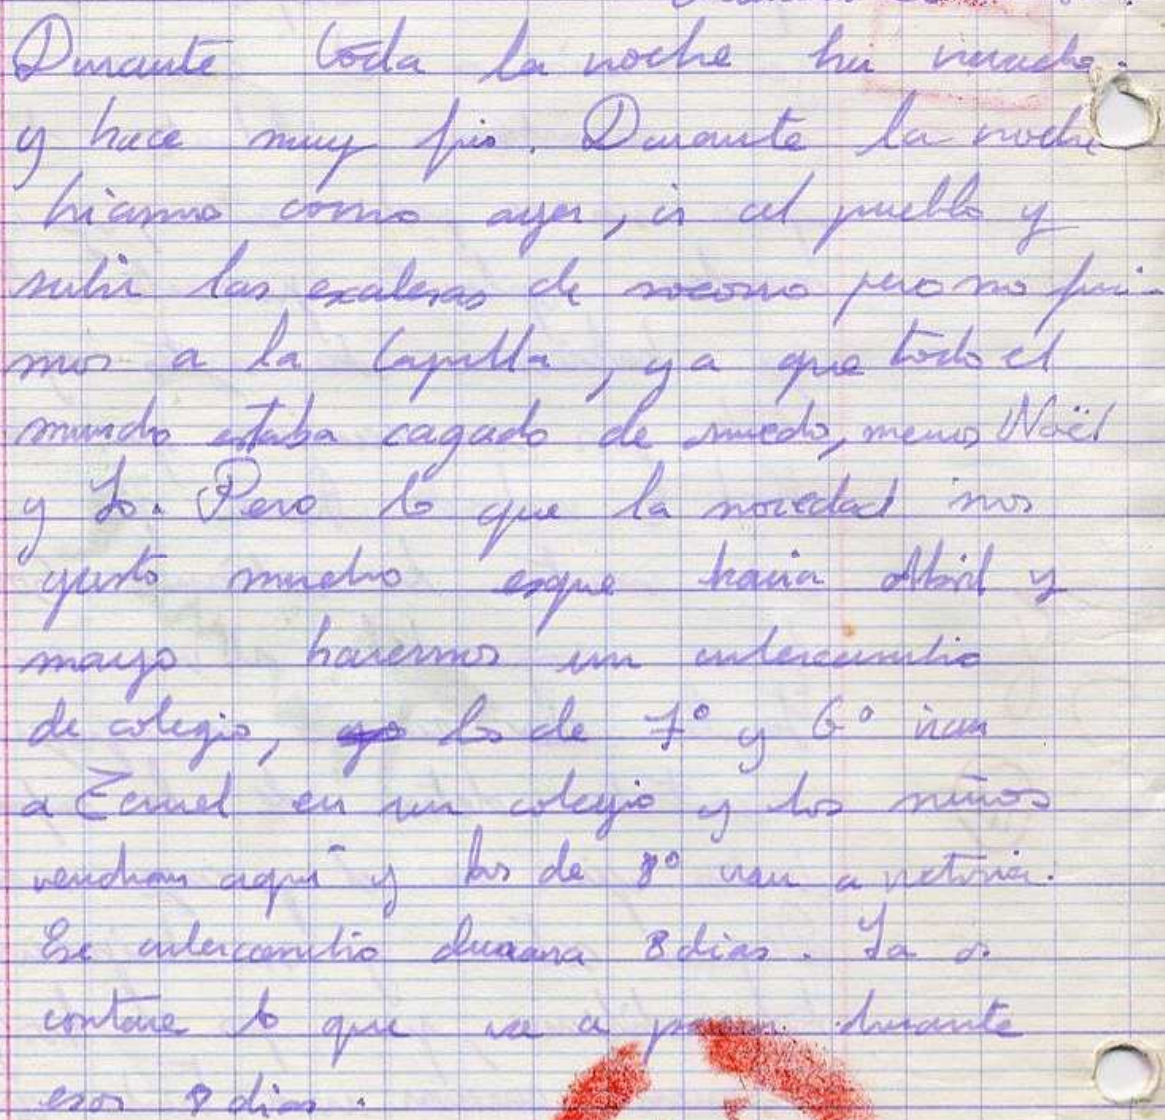 Durante toda la noche ha nevado.
y hace muy frio. Durante la noche
hicimos como ayer, ir al pueblo y
subir las escaleras de socorro pero no fui-
mos a la Capilla, ya que todo el
mundo estaba cagado de miedo, menos Noël
y Yo. Pero lo que la novedad nos
gusto mucho esque hacia Abril y
mayo haremos un intercambio
de colegio, los de 7º y 6º iran
a Teruel en un colegio y los niños
vendran aqui y los de 8º van a vitoria.
Ese intercambio durara 8 dias. Ya os
contare lo que va a pasar durante
esos 8 dias.